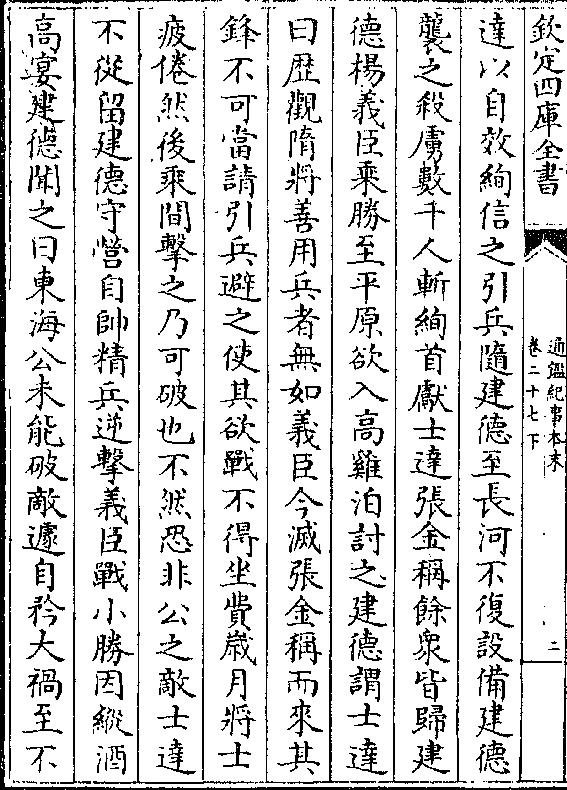 欽定四庫全書
通鑑紀事本末
卷二十七下
二
達以自效絢信之引兵隨建德至長河不復設備建德
襲之殺虜數千人斬絢首獻士達張金稱餘衆皆歸建
德楊義臣乘勝至平原欲入高雞泊討之建德謂士達
曰歴觀隋將善用兵者無如義臣今滅張金稱而來其
鋒不可當請引兵避之使其欲戰不得坐費歳月將士
疲倦然後乘間擊之乃可破也不然恐非公之敵士達
不從留建德守營自帥精兵逆擊義臣戰小勝因縱酒
高宴建德聞之曰東海公未能破敵遽自矜大禍至不